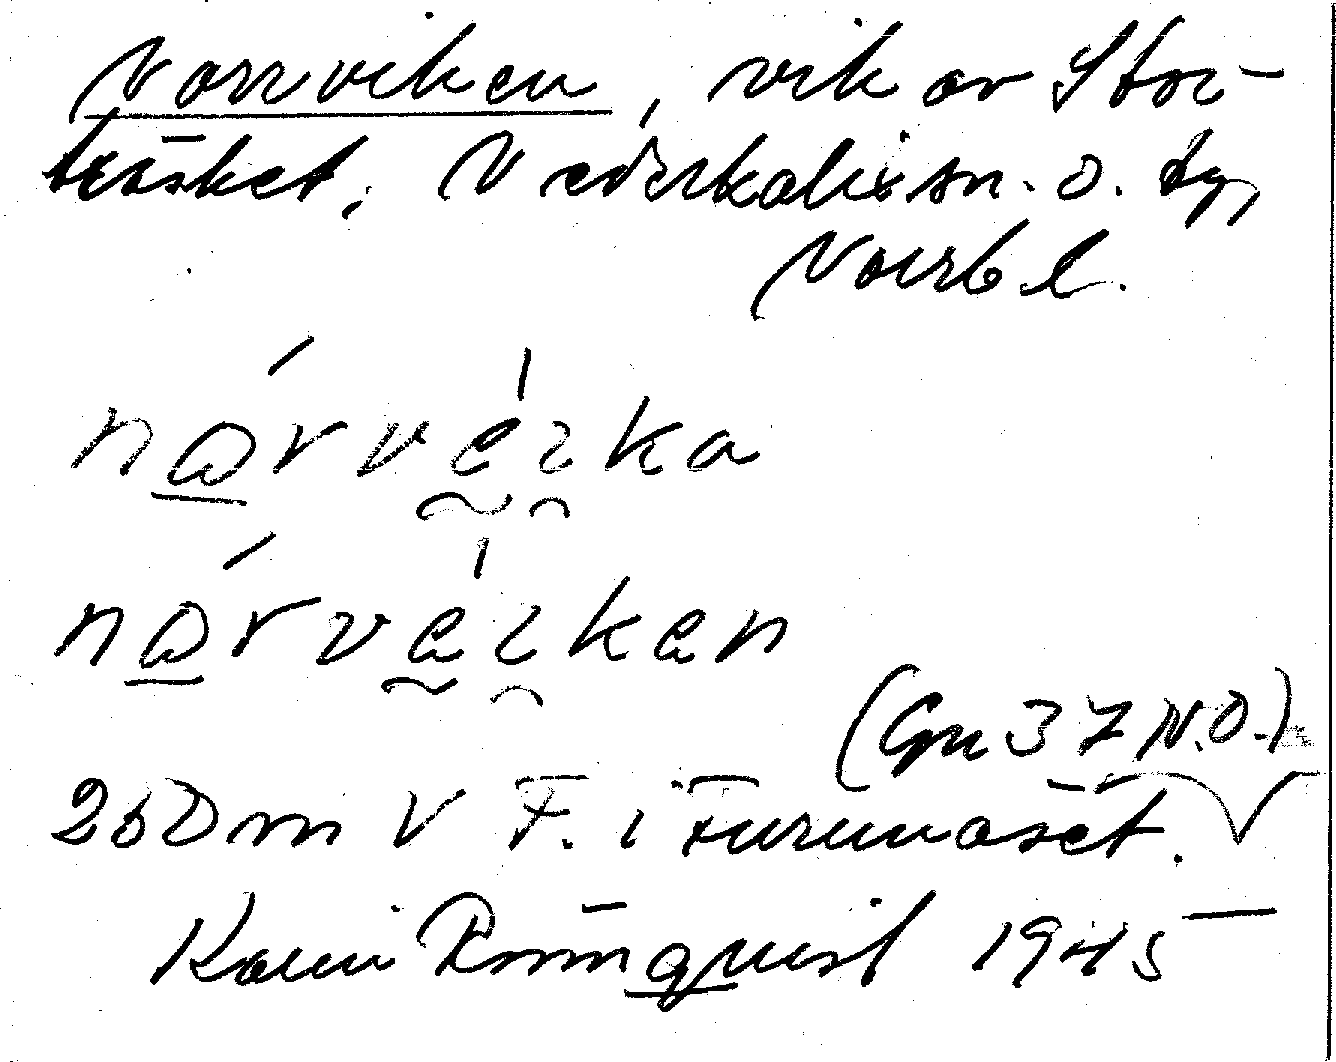 Norrviken, vik av Stor-
träsket, Nederkalix sn. o. tg,
Norrb l.
nárvéika
nárvéiken
(Gpu 37 N.O.)
260 m V F. i Furunäset.
Karin Rönnqvist 1945